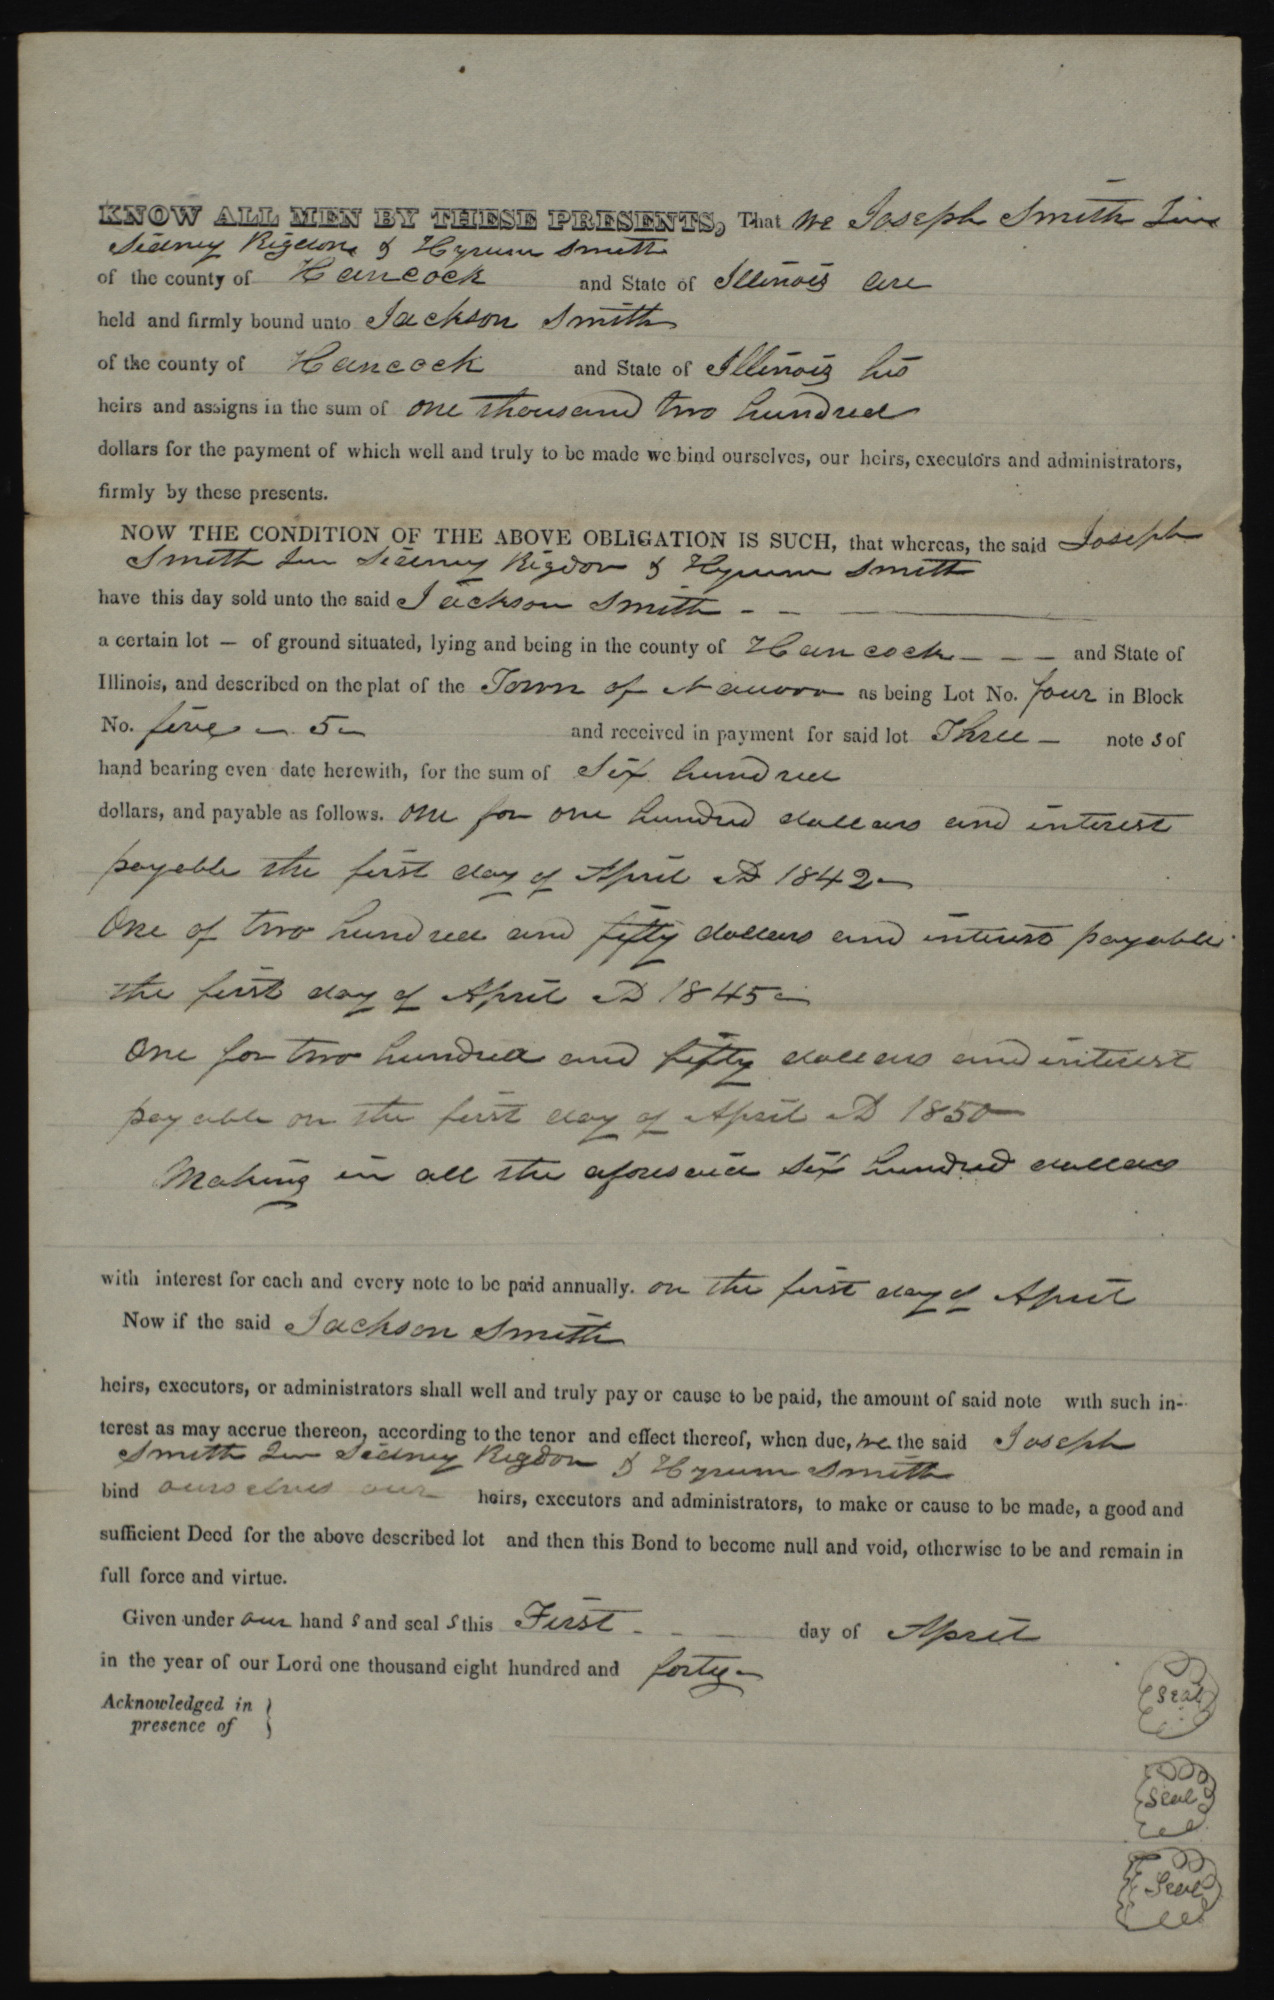 KNOW ALL MEN BY THESE PRESENTS, That we Joseph Smith Jun
Sidney Rigdon & Hyrum Smith
of the county of Hancock and State of Illinois are
held and firmly bound unto Jackson Smith
of the county of Hancock and State of Illinois his
heirs and assigns in the sum of one thousand two hundred
dollars for the payment of which well and truly to be made we bind ourselves, our heirs, executors and administrators,
firmly by these presents.
NOW THE CONDITION OF THE ABOVE OBLIGATION IS SUCH, that whereas, the said Joseph
Smith Jun Sidney Rigdon & Hyrum Smith
have this day sold unto the said Jackson Smith - - —
a certain lot — of ground situated, lying and being in the county of Hancock - - - and State of
Illinois, and described on the plat of the Town of Nauvoo as being Lot No. four in Block
No. five - 5 - and received in payment for said lot Three - note s of
hand bearing even date herewith, for the sum of Six hundred
dollars, and payable as follows. One for one hundred dollars and interest
payable the first day of April AD 1842 -
One of two hundred and fifty dollars and interest payable
the first day of April AD 1845 -
One for two hundred and fifty dollars and interest
payable on the first day of April AD 1850
Making in all the aforesaid six hundred dollars
with interest for each and every note to be paid annually. on the first day of April
Now if the said Jackson Smith
heirs, executors, or administrators shall well and truly pay or cause to be paid, the amount of said note with such in-
terest as may accrue thereon, according to the tenor and effect thereof, when due, we the said Joseph
Smith Jun Sidney Rigdon & Hyrum Smith
bind ourselves our heirs, executors and administrators, to make or cause to be made, a good and
sufficient Deed for the above described lot and then this Bond to become null and void, otherwise to be and remain in
full force and virtue.
Given under our hand s and seal s this First - - - day of April
in the year of our Lord one thousand eight hundred and forty -
Acknowledged in }
presence of }
Seal
Seal
Seal